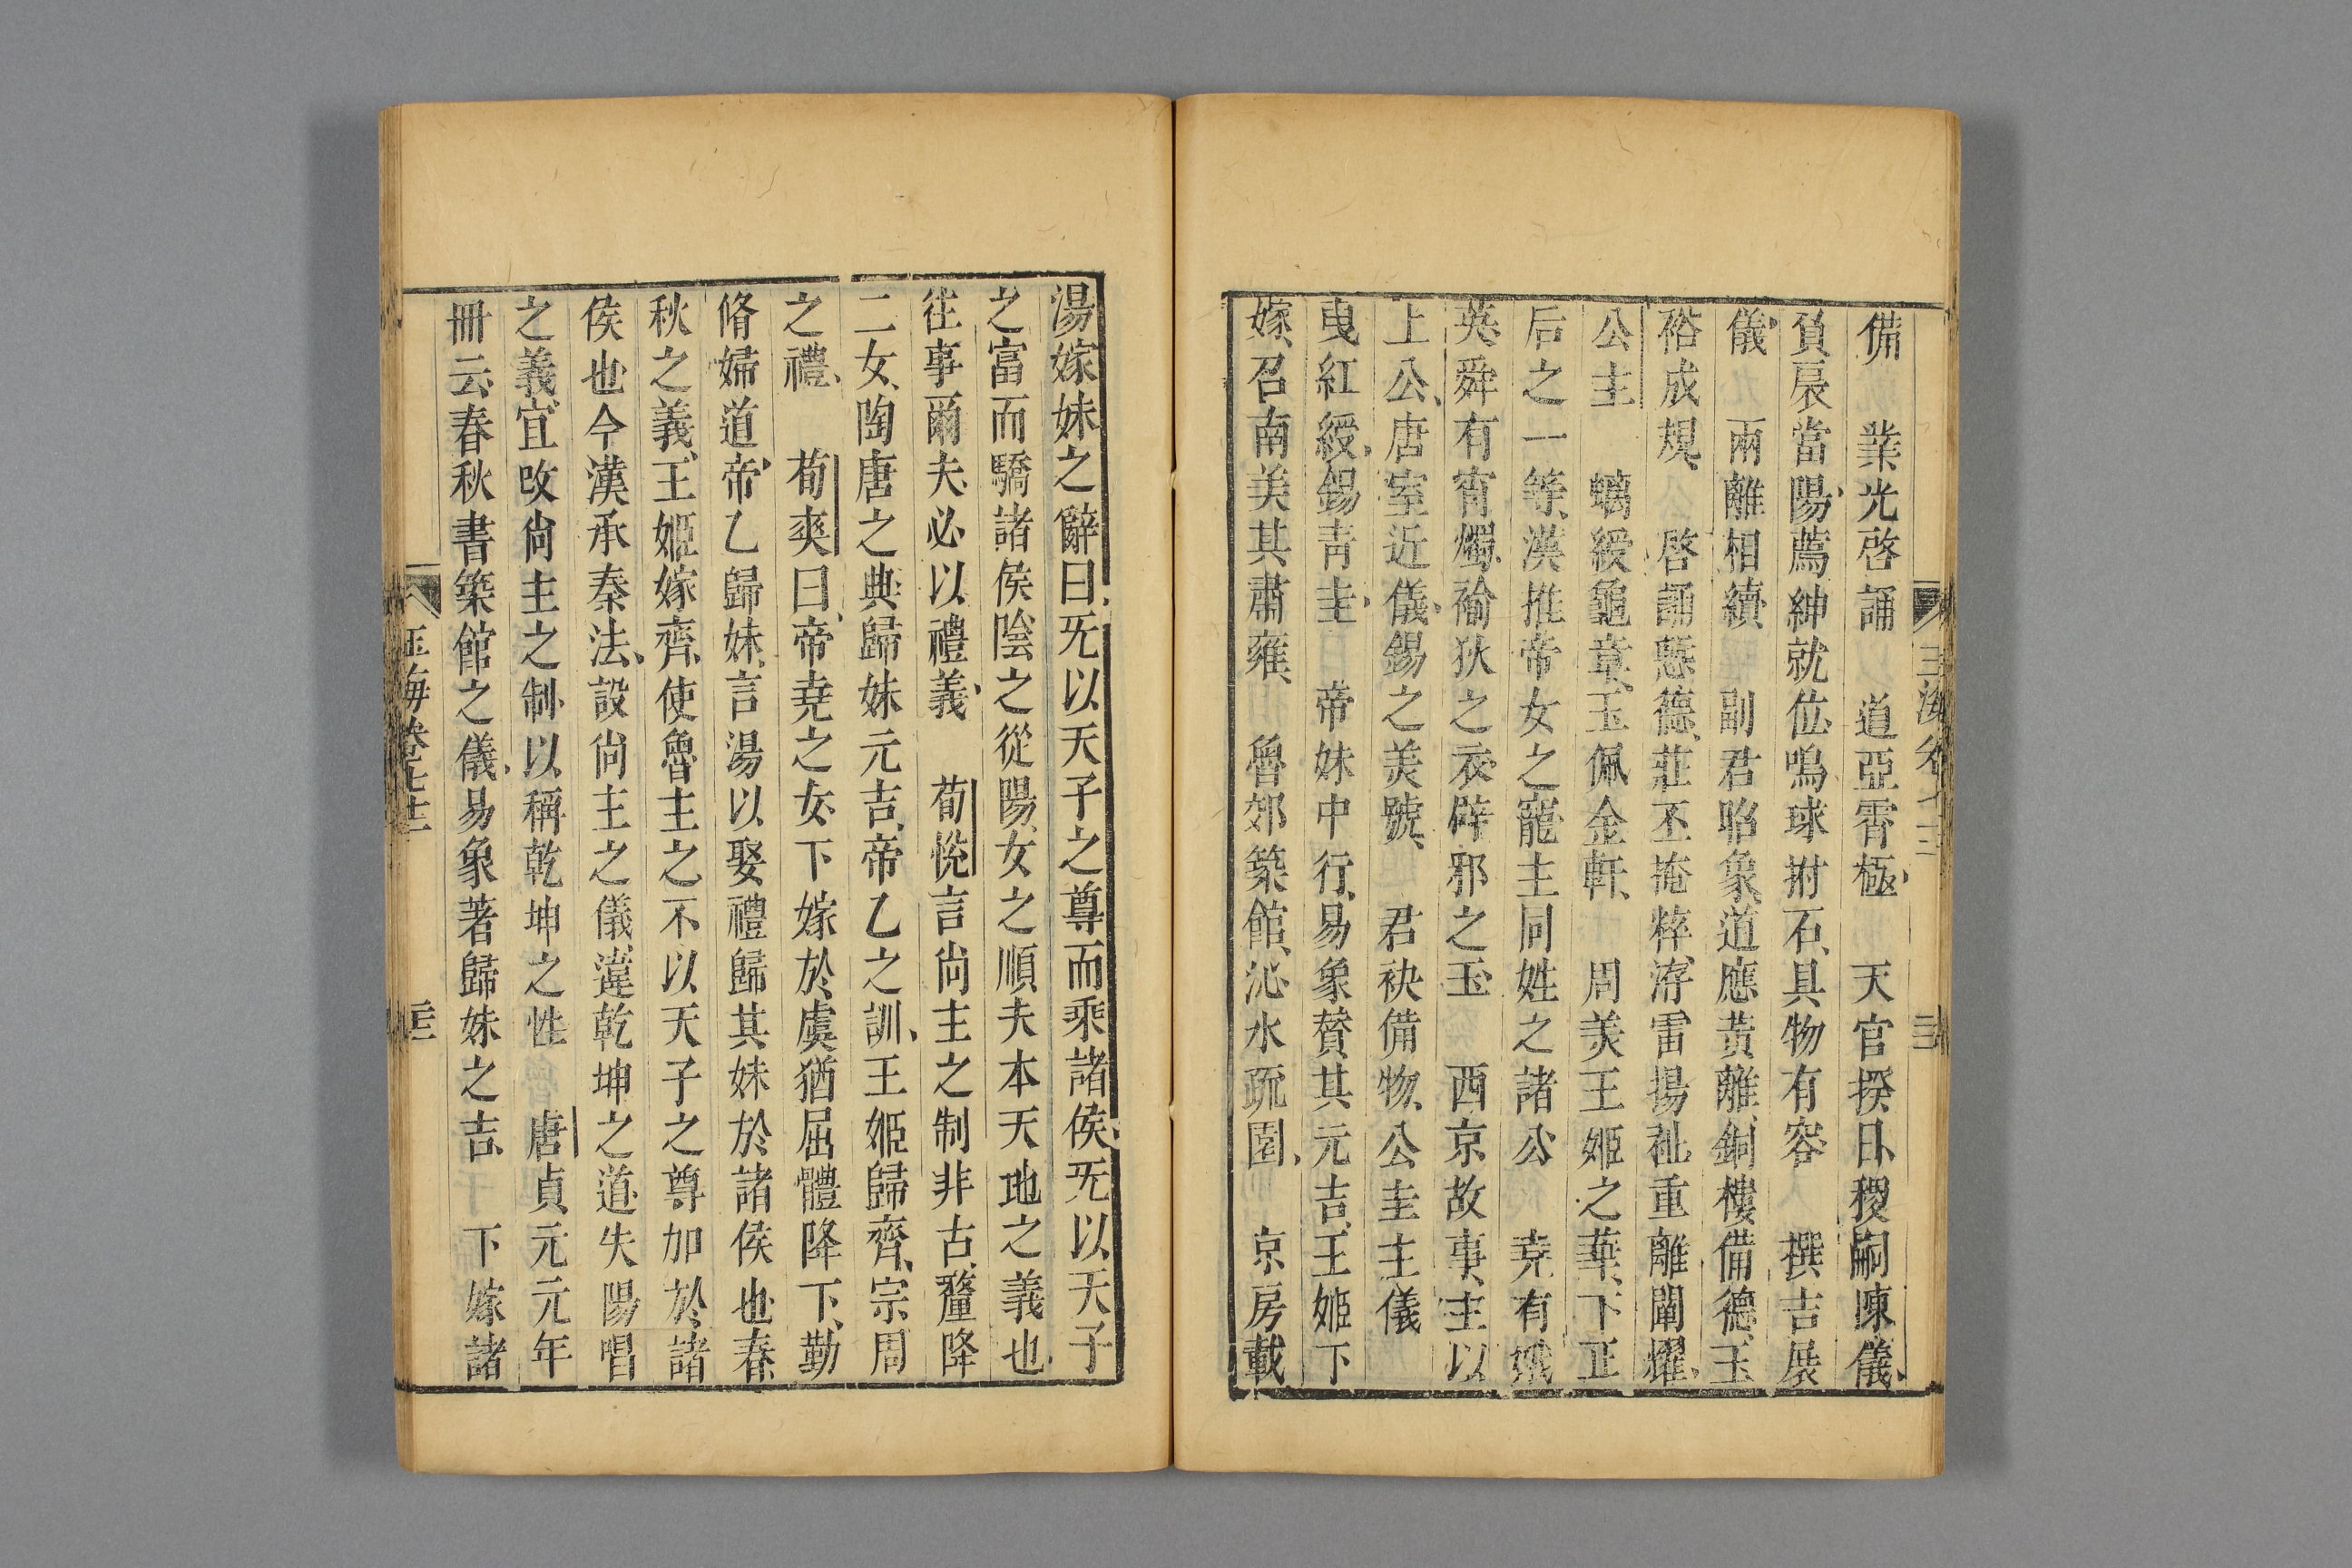 備　業光啓誦　道亞霄極　天官揆日稷嗣陳儀
負扆當陽薦紳就位鳴球拊石具物有容　撰吉展
儀　兩離相續　副君昭象道應黃離銅樓備德玉
裕成規　啓誦懸德莊丕掩粹洊雷揚祉重離闡耀
公主　螭綬龜章玉佩金軒　周美王姬之華下正
后之一等漢推帝女之寵主同姓之諸公　堯有娥
英舜有宵燭　褕狄之衣辟邪之玉　西京故事主以
上公唐室近儀錫之美號　君袂備物公圭主儀
曳紅綬錫青圭　帝妹中行易象贊其元吉王姬下
嫁召南美其肅雍　魯郊築館沁水疏園　京房載
湯嫁妹之辭曰旡以天子之尊而乘諸侯旡以天子
之富而驕諸侯陰之從陽女之順夫本天地之義也
往事爾夫必以禮義　荀悅言尚主之制非古釐降
二女陶唐之典歸妹元吉帝乙之訓王姬歸齊宗周
之禮　荀爽曰帝堯之女下嫁於虞猶屈體降下勤
脩婦道帝乙歸妹言湯以娶禮歸其妹於諸侯也春
秋之義王姬嫁齊使魯主之不以天子之尊加於諸
侯也今漢承秦法設尚主之儀違乾坤之道失陽唱
之義宜改尚主之制以稱乾坤之性　唐貞元元年
冊云春秋書築館之儀易象著歸妹之吉　下嫁諸
玉海卷七十三